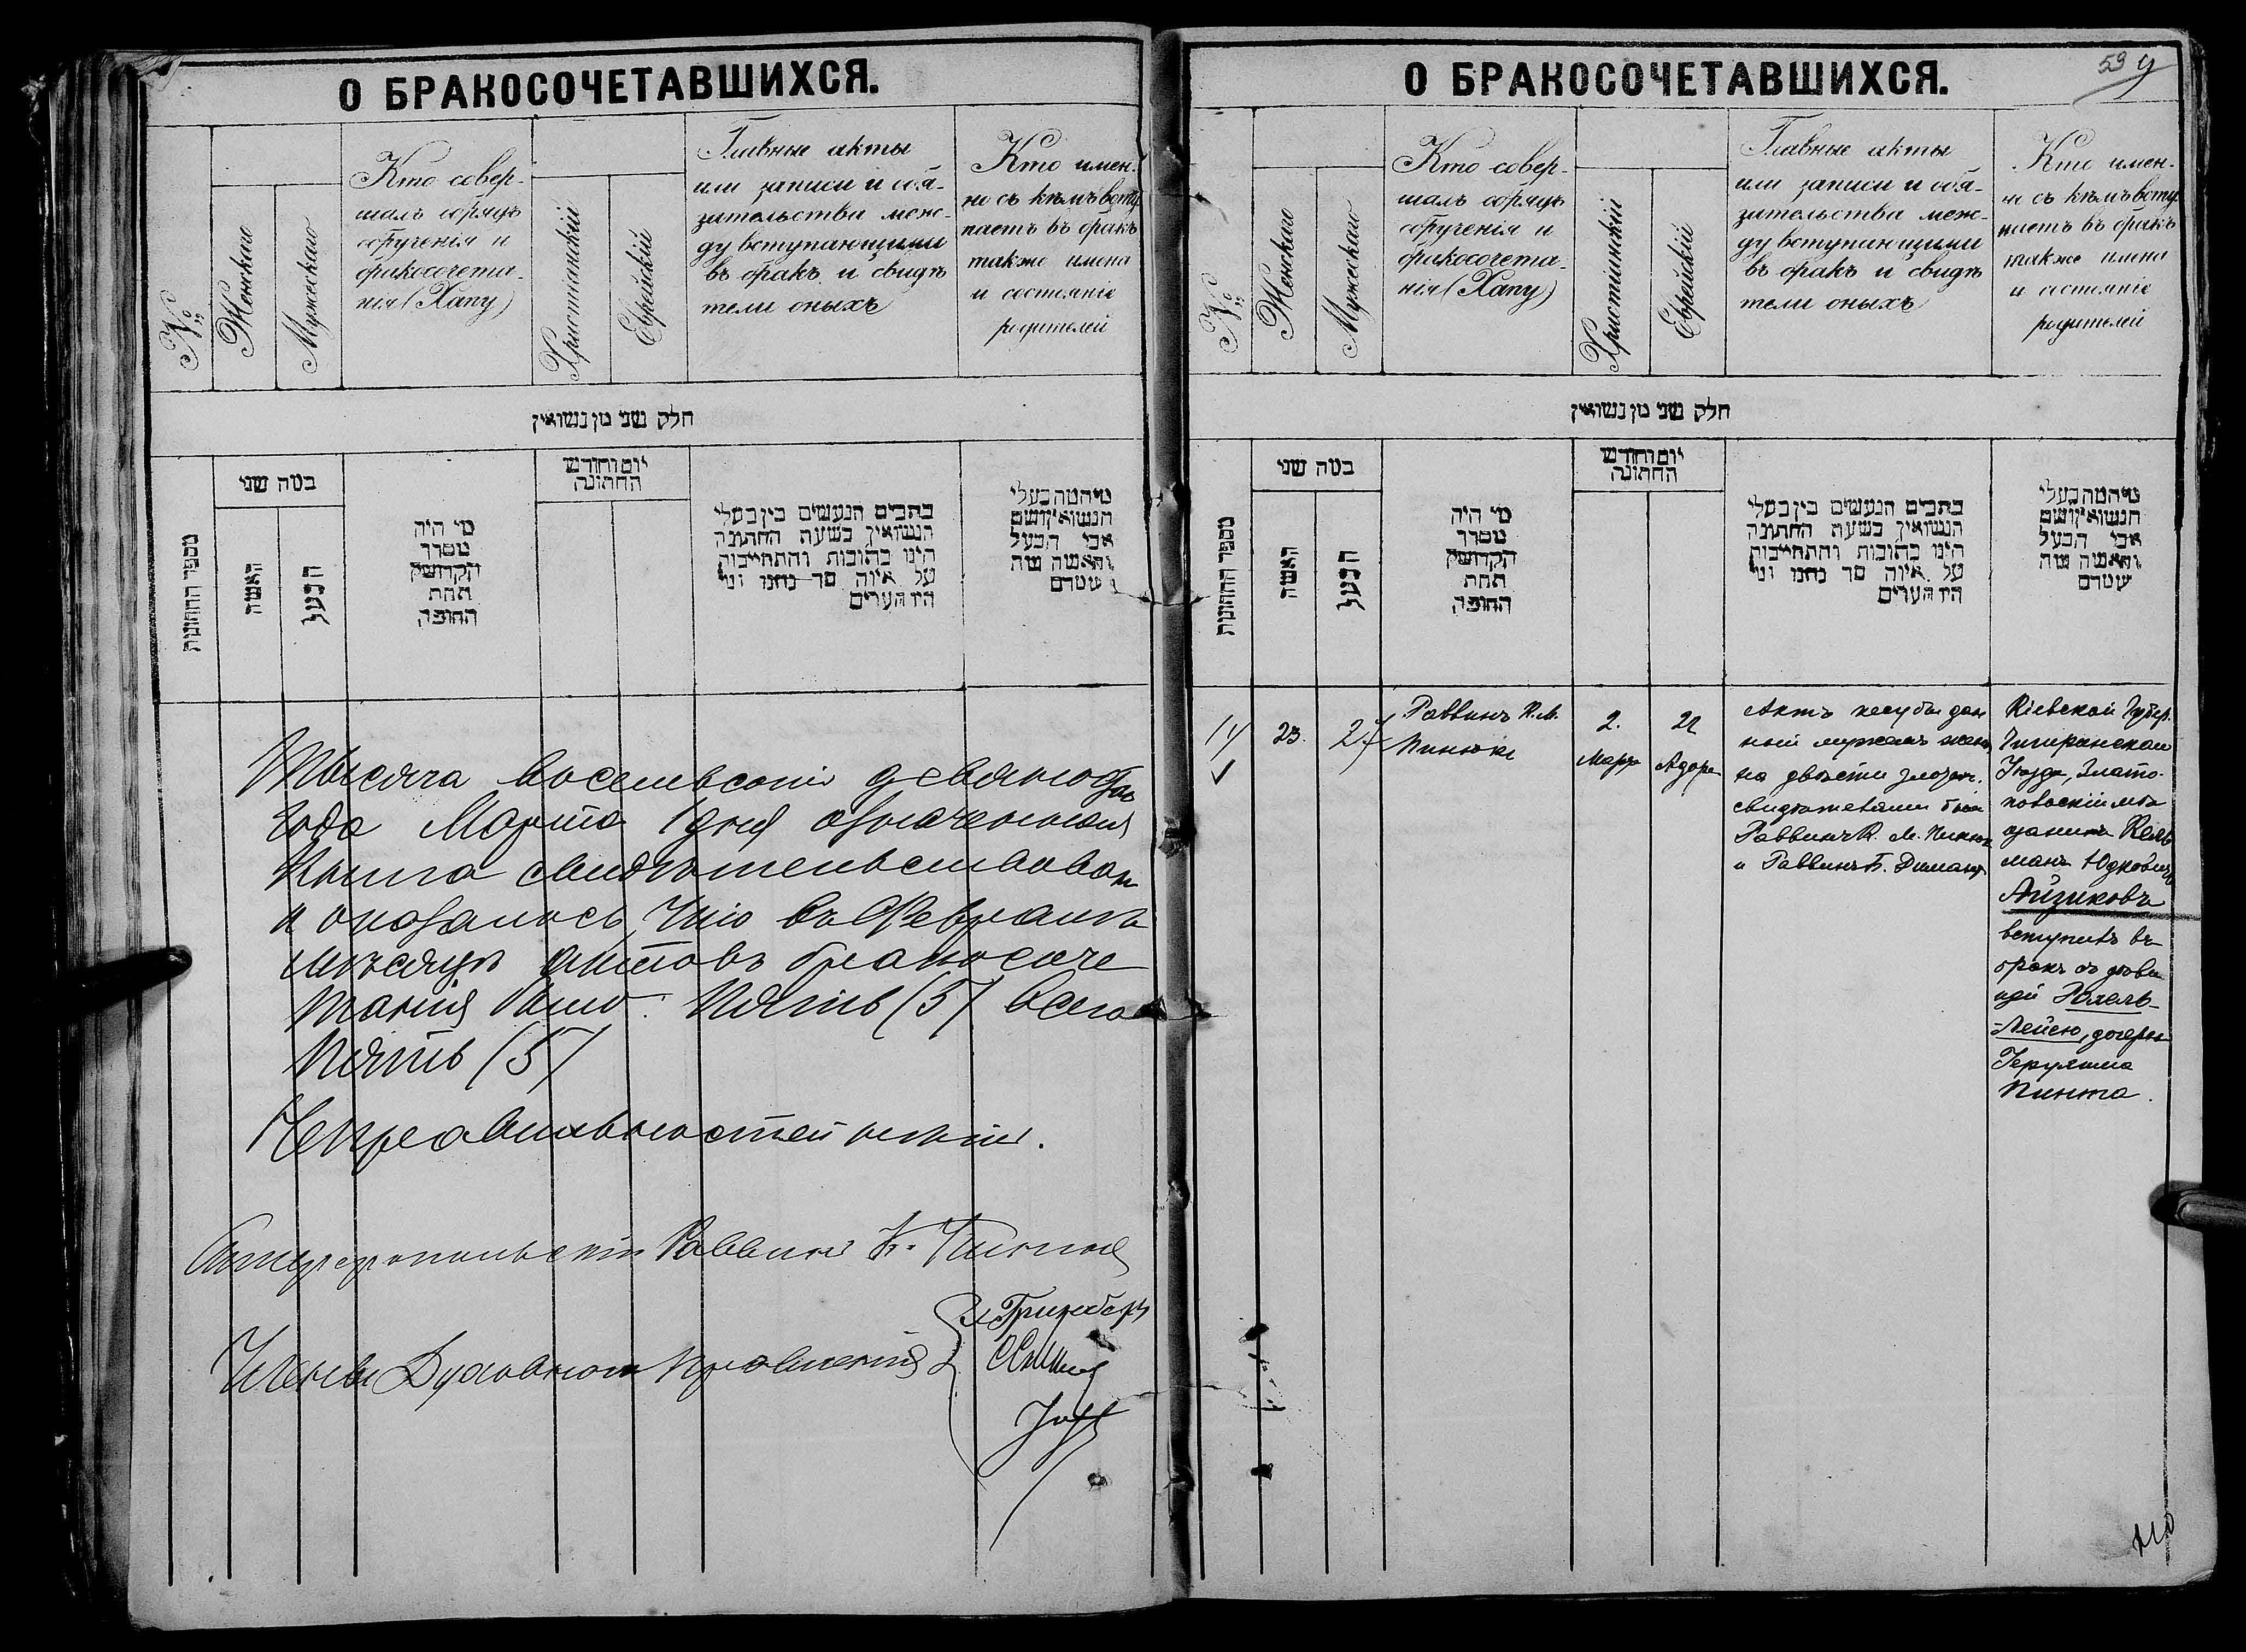 О БРАКОСОЧЕТАВШИХСЯ.
№
Женскаго
Мужескаго
Кто совер-
шалъ обрядъ
обрученія и
бракосочета-
нія (Хапу)
Христіанскій
Еврейскій
Главные акты
или записи и обя-
зательства меж-
ду вступающими
въ бракъ и свидѣ
тели оныхъ
Кто имен-
но съ кѣмъ всту
паетъ въ бракъ
также имена
и состояніе
родителей
חלק שני מן נשואין
מספר החתונות
במה שני
האשה
הבעל
מי היה
מסדר
הקדושין
תחת
החופה
יום וחודש
החתונה
כתבים הנעשים בין בעלי
הנשואין בשעת החתונה
היינו כתובות והתחייבות
על איזה סך נתנו ומי
היו העדים
מי המה בעלי
הנשואין ושם
אבי הבעל
והאשה ומה
שמם
Тысяча восемьсотъ девяно
года Марта 1 дня означенная
Книга свидѣтельствована
и оказалось, что въ Февралѣ
мѣсяцѣ актовъ бракосоче
танія было: Пять (5) всего
Пять (5)
Неправильностей нѣтъ.
Раввинъ К.
Члены Духовнаго Правленія
Гринберг
О БРАКОСОЧЕТАВШИХСЯ.
59
№
Женскаго
Мужескаго
Кто совер-
шалъ обрядъ
обрученія и
бракосочета-
нія (Хапу)
Христіанскій
Еврейскій
Главные акты
или записи и обя-
зательства меж-
ду вступающими
въ бракъ и свидѣ
тели оныхъ
Кто имен-
но съ кѣмъ всту
паетъ въ бракъ
также имена
и состояніе
родителей
חלק שני מן נשואין
מספר החתונות
במה שני
האשה
הבעל
מי היה
מסדר
הקדושין
תחת
החופה
יום וחודש
החתונה
כתבים הנעשים בין בעלי
הנשואין בשעת החתונה
היינו כתובות והתחייבות
על איזה סך נתנו ומי
היו העדים
מי המה בעלי
הנשואין ושם
אבי הבעל
והאשה ומה
שמם
14
23.
27
Раввинъ К. М.
Пинюкъ
2.
Марта
22
Адора
Актъ кесуба дан
ный мужемъ женѣ
на двѣсти злотых.
свидѣтелями были
Раввинъ К. М. Пинюк
и Раввинъ Б. Диманд
Кіевской Губер.
Чигиринскаго
Уѣзда, Злато-
повскій мѣ
щанинъ Кель
манъ Юдковичъ
Айзиковъ
вступилъ въ
бракъ съ дѣви
цей Рохель-
-Лейею, дочерью
Герулима
Пинта.
210